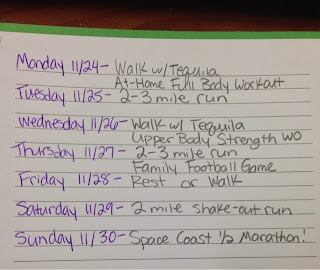 Monday 11/24- Walk w/Tequila
At-Home Full Body Workout
Tuesday 11/25- 2-3 mile run
Wednesday 11/26- Walk w/ Tequila
Upper Body Strength WO
Thursday 11/27- 2-3 mile run
Family Football Game
Friday 11/28- Rest or Walk
Saturday 11/29- 2 mile shake-out run
Sunday 11/30- Space Coast 1/2 Marathon!